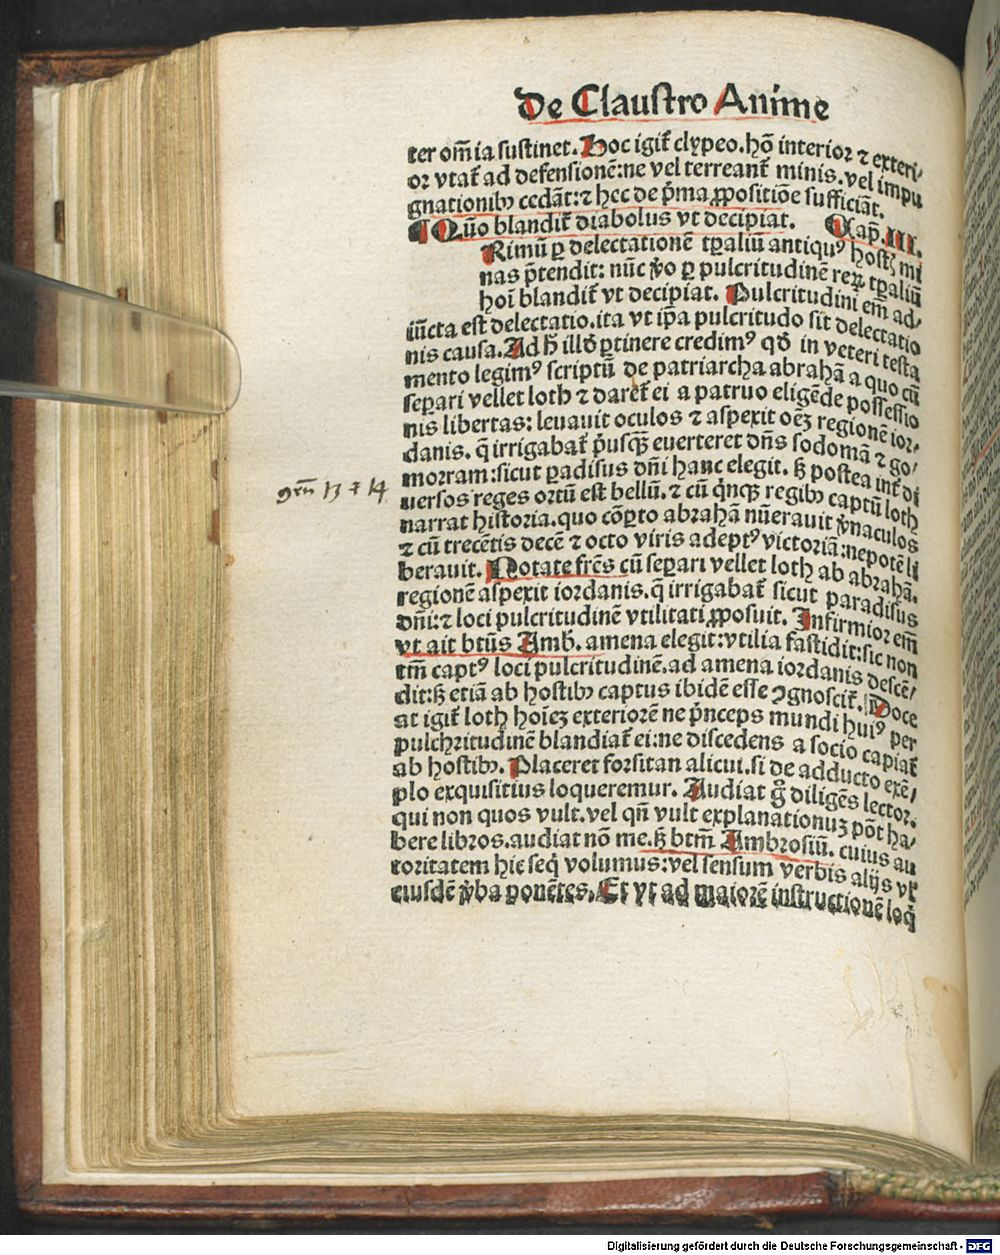 De Claustro Anime
ter om̄ia sustinet. Hoc igit᷑ clypeo. hō interior ⁊ exteri⸗
or vtat᷑ ad defensionē: ne vel terreant᷑ minis. vel impu
gnationibꝰ cedāt: ⁊ hec de p̄ma ꝓpositiōe sufficiāt.
¶ Quō blandit᷑ diabolus vt decipiat. Cap̄. III.
Rimū ꝑ delectationē tꝑaliū antiquꝰ hostꝭ mi
nas p̄tendit: nūc ꝟo ꝑ pulcritudinē reꝝ tꝑaliū
hoī blandit᷑ vt decipiat. Pulcritudini em̄ ad⸗
iūcta est delectatio. ita vt ip̄a pulcritudo sit delectatio
nis causa. Ad h̄ illđ ꝑtinere credimꝰ qđ in veteri testa
mento legimꝰ scriptū de patriarcha abrahā a quo cū
seꝑari vellet loth ⁊ daret᷑ ei a patruo eligēde possessio
nis libertas: leuauit oculos ⁊ aspexit oēꝫ regionē ior⸗
danis. q̄ irrigabat᷑ p̄usꝗ̄ euerteret dn̄s sodomā ⁊ go⸗
morram: sicut ꝑadisus dn̄i hanc elegit. sꝫ postea int᷑ di
uersos reges ortū est bellū. ⁊ cū q̄nqꝫ regibꝰ captū loth
narrat historia. quo cōꝑto abrahā nūerauit ꝟnaculos
⁊ cū trecētis decē ⁊ octo viris adeptꝰ victoriā: nepotē li
berauit. Notate fr̄es cū seꝑari vellet loth ab abrahā.
regionē aspexit iordanis. q̄ irrigabat᷑ sicut paradisus
dn̄i: ⁊ loci pulcritudinē vtilitati ꝓposuit. Infirmior em̄
vt ait btūs Amb̄. amena elegit: vtilia fastidit: sic non
tm̄ captꝰ loci pulcritudinē. ad amena iordanis descē⸗
dit: sꝫ etiā ab hostibꝰ captus ibidē esse ꝯgnoscit᷑. Doce
at igit᷑ loth hoīeꝫ exteriorē ne p̄nceps mundi huiꝰ per
pulchritudinē blandiat᷑ ei: ne discedens a socio capiat᷑
ab hostibꝰ. Placeret forsitan alicui. si de adducto exē⸗
plo exquisitius loqueremur. Audiat g̊ diligēs lector.
qui non quos vult. vel qn̄ vult explanationuꝫ pōt ha⸗
bere libros. audiat nō me. sꝫ btm̄ Ambrosiū. cuius au
toritatem hic seq̄ volumus: vel sensum verbis alijs vł
eiusdē ꝟba ponētes. Et vt ad maiorē instructionē loq̄
gen̄ 13 ⁊ 14
Digitalisierung gefördert durch die Deutsche Forschungsgemeinschaft - DFG